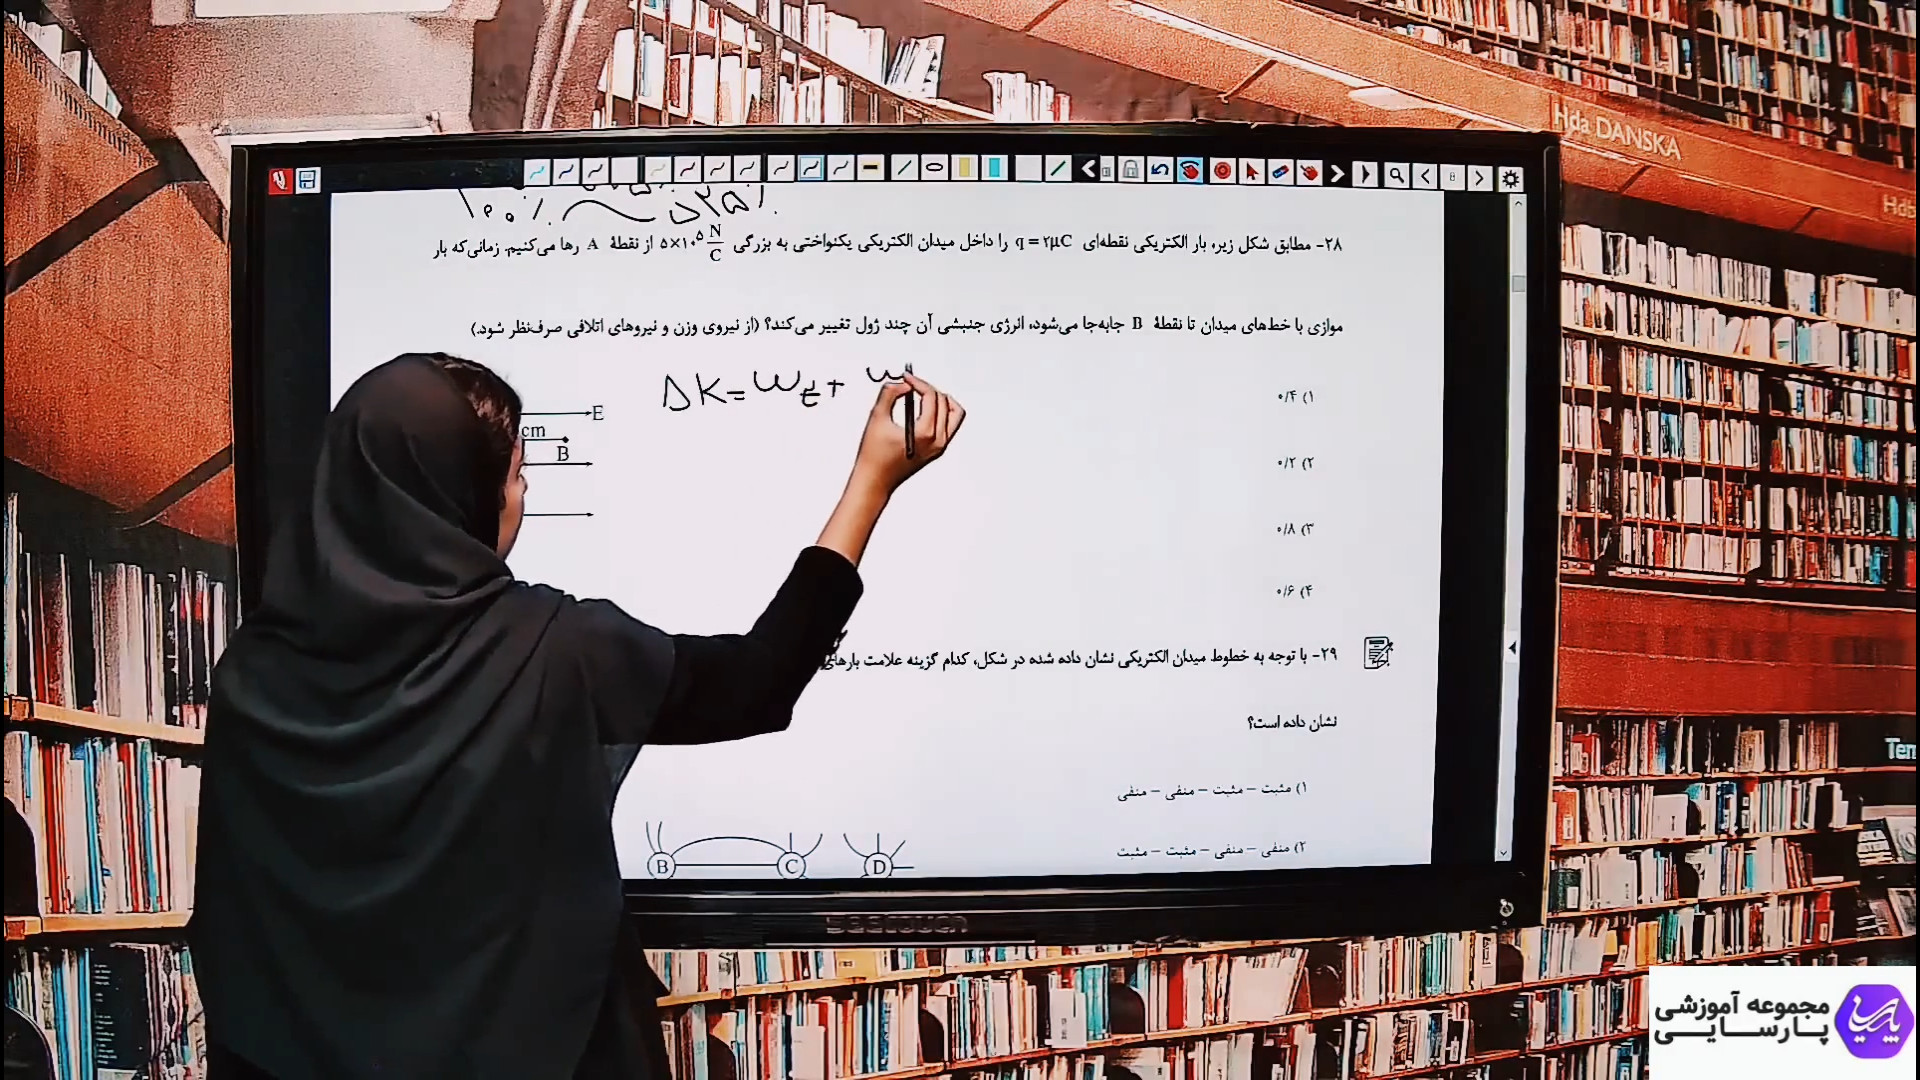 Hda DANSKA
Hdb
۱۰۰٪
۲۵٪
۲۸- مطابق شکل زیر، بار الکتریکی نقطه‌ای q = ۲μC را داخل میدان الکتریکی یکنواختی به بزرگی ۵×۱۰⁵ N/C از نقطهٔ A رها می‌کنیم. زمانی‌که بار
موازی با خط‌های میدان تا نقطهٔ B جابه‌جا می‌شود، انرژی جنبشی آن چند ژول تغییر می‌کند؟ (از نیروی وزن و نیروهای اتلافی صرف‌نظر شود.)
ΔK = W_E + W
E
cm
B
۱) ۰/۴
۲) ۰/۲
۳) ۰/۸
۴) ۰/۶
۲۹- با توجه به خطوط میدان الکتریکی نشان داده شده در شکل، کدام گزینه علامت بارهای
نشان داده است؟
۱) مثبت – مثبت – منفی – منفی
۲) منفی – منفی – مثبت – مثبت
B C D
Tem
مجموعه آموزشی
پارسایی